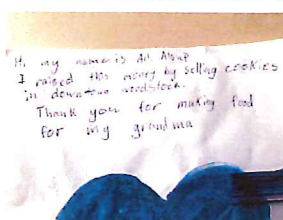 Hi my name is Ali
I raised this money by selling cookies
in downtown woodstock.
Thank you for making food
for my grandma